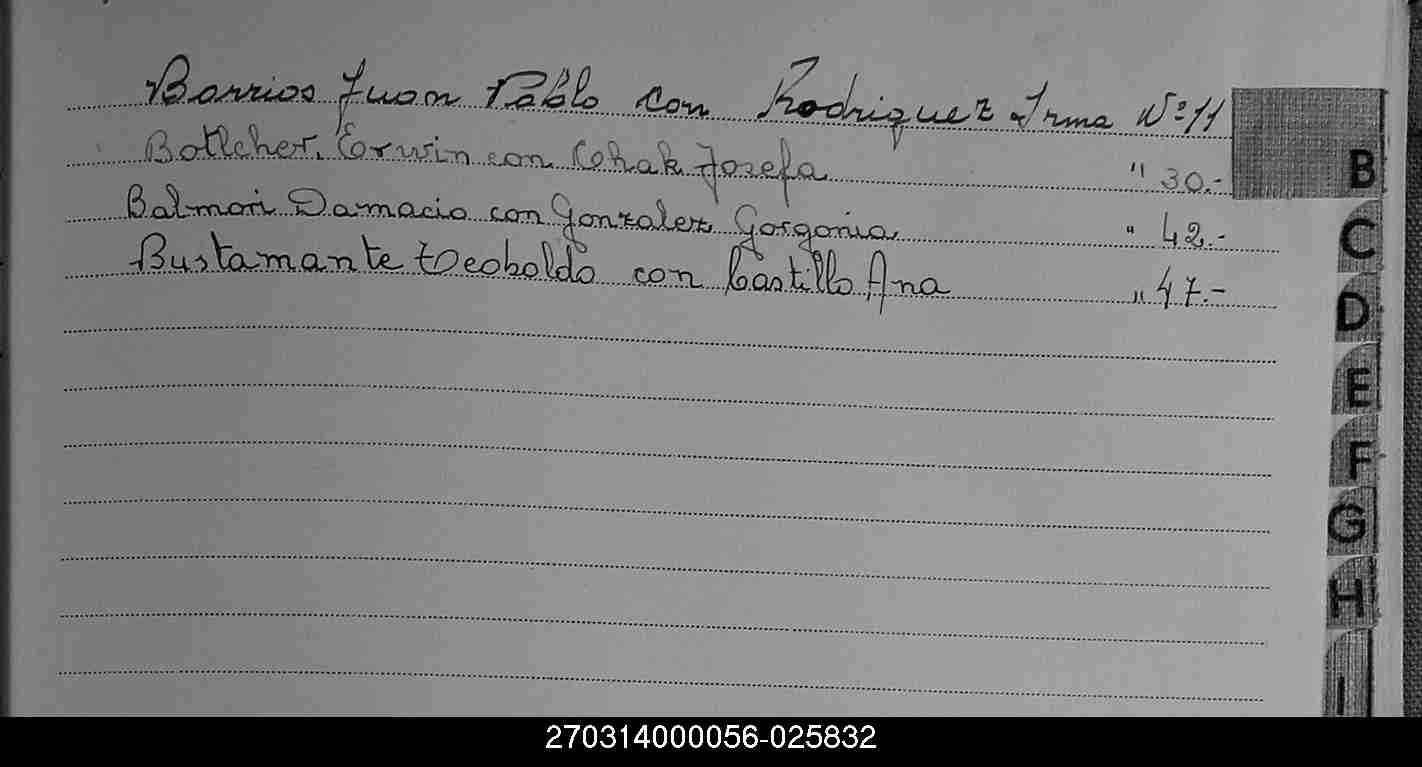 Barrios Juan Pablo con Rodriguez Irma Nº 11
B
Botlcher, Erwin con Cehak Josefa " 30.-
Balmori Damacio con Gonzalez Gorgonia " 42.-
C
Bustamante Teoboldo con Castillo Ana " 47.-
D
E
F
G
H
I
270314000056-025832